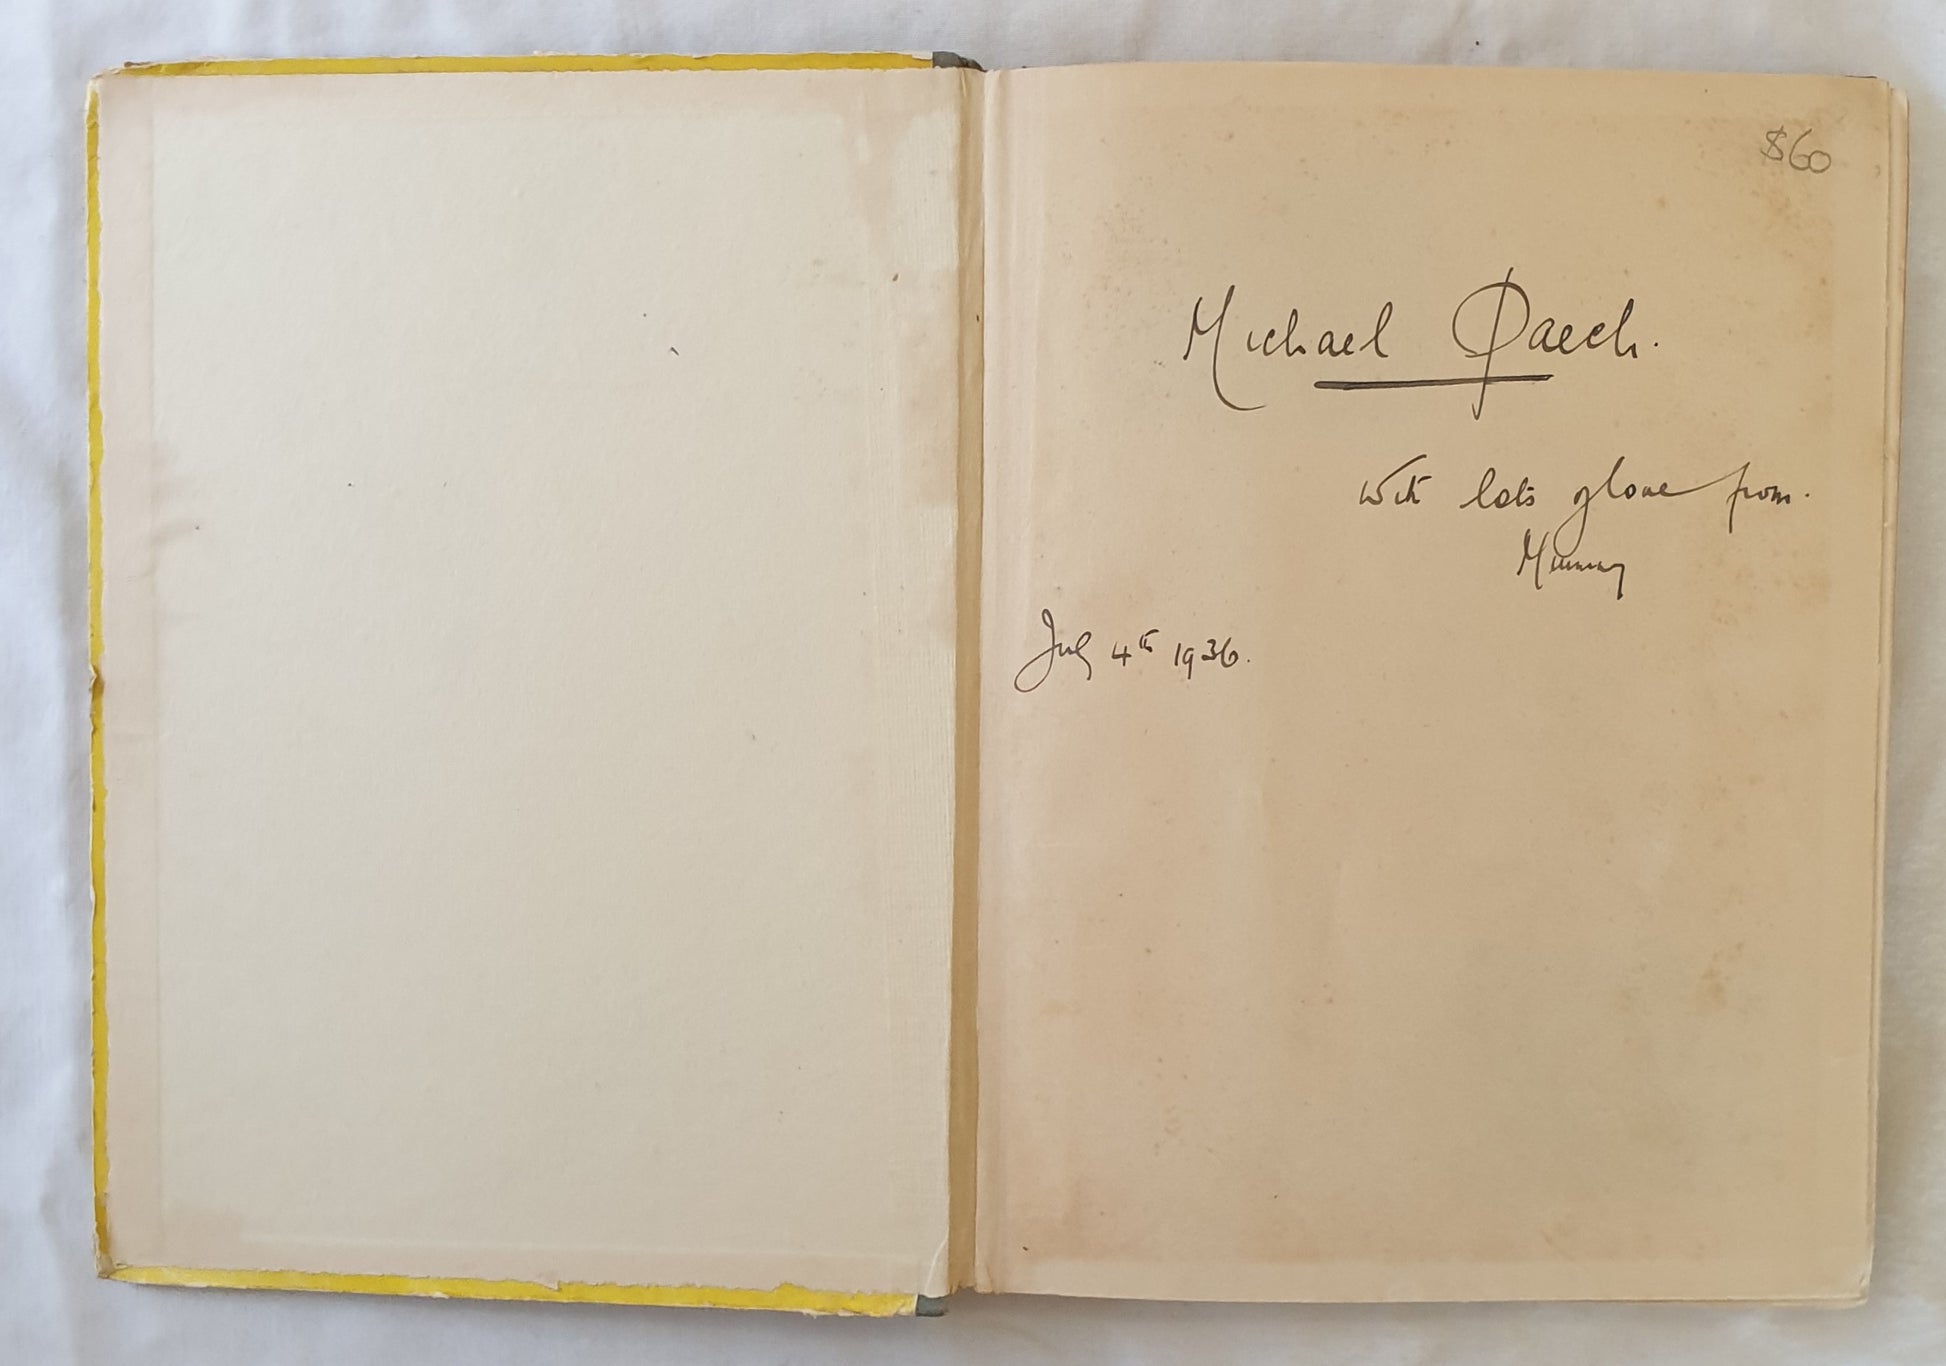 $60
Michael Paech.
with lots of love from.
Mummy
July 4th 1936.